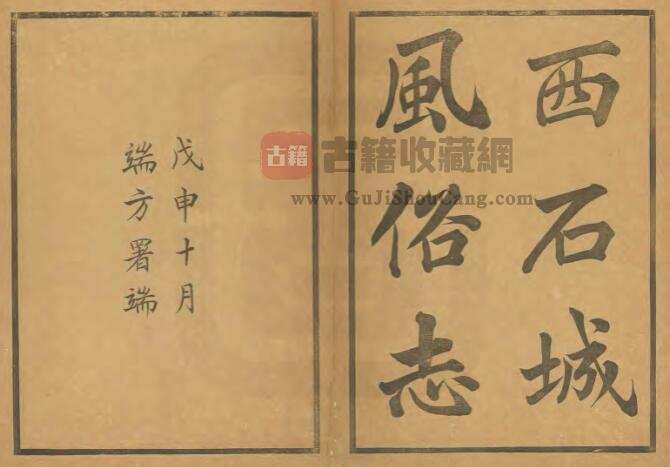 西石城
風俗志
戊申十月
端方署端
古籍
古籍收藏網
www.GuJiShouCang.com